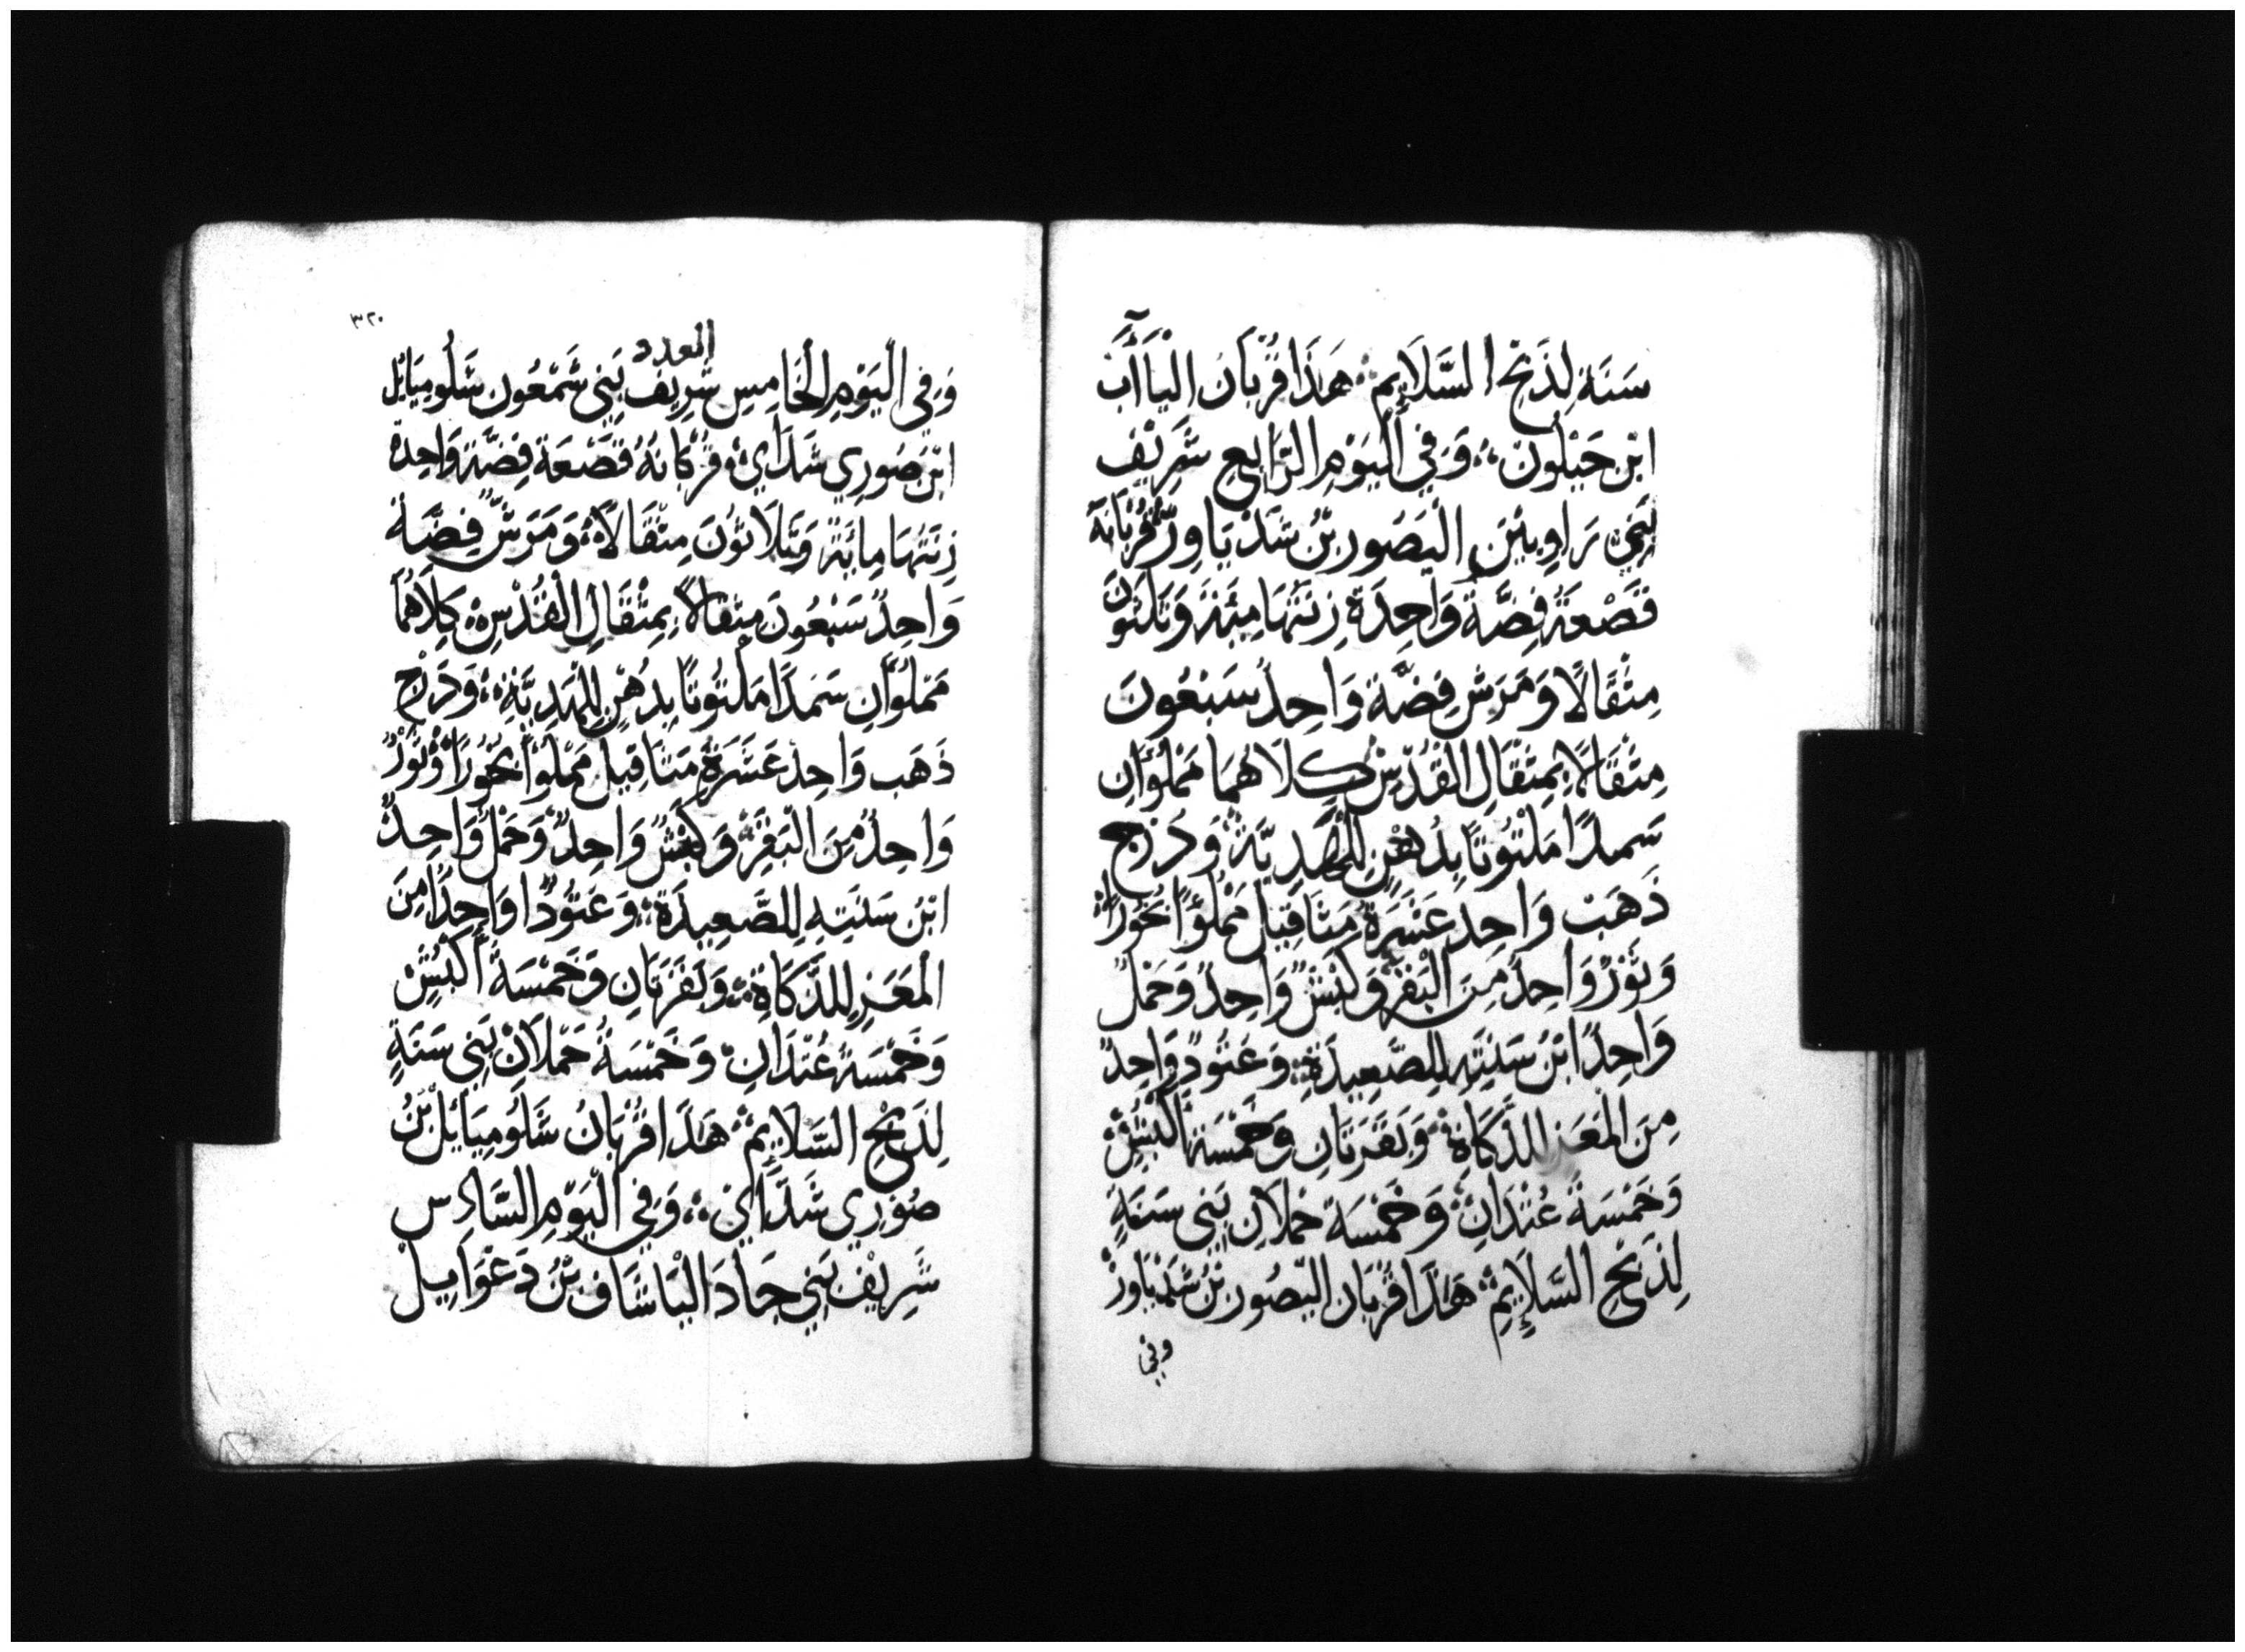 سَنَةٍ لِذَبْحِ السَّلَايِمِ هَذَا قُرْبَان اليَاآَب
ابْن حَيْلُون وَفِي اليَوْمِ الرَّابِعِ شَرِيْف
بَنِي رَاوِبيْن اليَصُور بْنُ شَدْيَاوِرْ قُرْبَانَهُ
قَصْعَةُ فِضَّةٍ وَاحِدَة زِنَتُهَا مِئَة وَثَلَثُونَ
مِثْقَالًا وَمَرَشّ فِضَّة وَاحِدُ سَبْعُونَ
مِثْقَالًا بِمِثْقَالِ القُدْسِ كِلَاهُمَا مَمْلُوَانِ
سَمدًا مَلْتُوتًا بِدُهْنٍ لِلهَدِيَّة وَدُرْج
ذَهَبْ وَاحِد عَشَرَة مَثَاقِيْل مَمْلُوًا بَخُورًا
وَثَوْرٌ وَاحِدٌ مِنَ البَقَرِ وَكَبْشٌ وَاحِدٌ وَحَمْلٌ
وَاحِدًا ابْنُ سَنَتِهِ لِلصَّعِيدَةِ وَعَتُودٌ وَاحِدٌ
مِنَ المَعَزِ لِلذَّكَاةِ وَبَقَرَتَانِ وَخَمْسَة أَكْبُشٍ
وَخَمْسَةُ عُتْدَانٍ وَخَمْسَة حُملَانِ بَنِي سَنَةٍ
لِذَبْحِ السَّلَايِمِ هَذَا قُرْبَان اليَصُور بْنُ شَدْيَاوِرْ
وفي
٣٢٠
العدد
وَفِي اليَوْمِ الخَامِسِ شَرِيْف بَنِي شَمْعُون شَلُومِيَائِل
ابْن صُورِي شَدَاي قُرْبَانَهُ قَصْعَة فِضَّة وَاحِدة
زِنَتُهَا مِائَةٌ وَثَلَاثُونَ مِثْقَالًا وَمَرَشّ فِضَّة
وَاحِدُ سَبْعُونَ مِثْقَالًا بِمِثْقَالِ القُدْسِ كِلَاهُمَا
مَمْلُوَّانِ سَمدًا مَلتُوتًا بِدُهْنٍ لِلهَدِيَّةِ وَدَرْج
ذَهَب وَاحِد عَشَرَةُ مَثَاقِيل مَمْلُوًا بَخُورًا وَثَوْرٌ
وَاحِدٌ مِنَ البَقَرِ وَكَبْشٌ وَاحِدٌ وَحَمْلٌ وَاحِدٌ
ابْنُ سَنَتِهِ لِلصَّعِيدَةِ وَعَتُودًا وَاحِدًا مِنَ
المَعَزِ لِلذَّكَاةِ وَبَقَرَتَانِ وَخَمْسَةُ أَكْبُشٍ
وَخَمْسَةُ عُتْدَانٍ وَخَمْسَةُ حَمْلَانْ بَنِي سَنَةٍ
لِذَبْحِ السَّلَايِمِ هَذَا قُرْبَانُ شَلُومِيَائِلْ بْنُ
صُوْرِي شَدَّاي وَفِي اليَوْمِ السَّادِس
شَرِيْف بَنِي جَادَ اليَاشَاف بْنُ دَعْوَايِيل